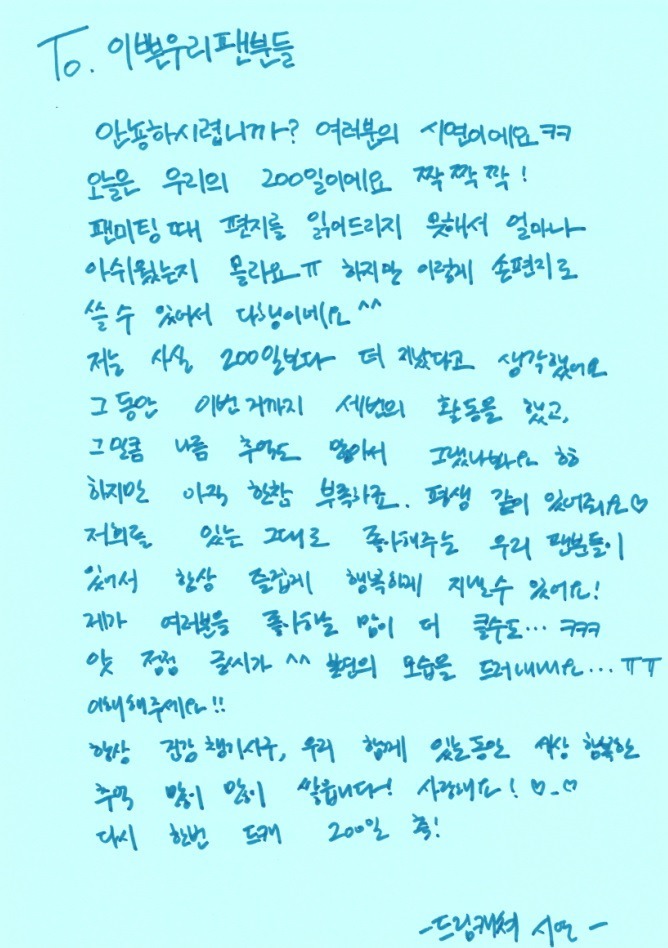 To. 이쁜우리팬분들
안뇽하시렵니까? 여러분의 시연이에요ㅋㅋ
오늘은 우리의 200일이에요 짝짝짝!
팬미팅때 편지를 읽어드리지 못해서 얼마나
아쉬웠는지 몰라요ㅠ 하지만 이렇게 손편지로
쓸 수 있어서 다행이네요^^
저는 사실 200일보다 더 지났다고 생각했어요
그동안 이번거까지 세번의 활동을 했고,
그만큼 나름 추억도 많아서 그랬나봐요 ㅎㅎ
하지만 아직 한참 부족하죠. 평생 같이 있어줘요♡
저희를 있는 그대로 좋아해주는 우리 팬분들이
있어서 항상 즐겁게 행복하게 지낼수 있어요!
제가 여러분을 좋아하는 맘이 더 클수도... ㅋㅋㅋ
앗 점점 글씨가 ^^ 본연의 모습을 드러내네요... ㅠㅠ
이해해주세요!!
항상 건강 챙기시구, 우리 함께 있는동안 세상 행복한
추억 많이 많이 쌓읍니다! 사랑해요! ♡_♡
다시 한번 드캐 200일 축!
-드림캐쳐 시연-